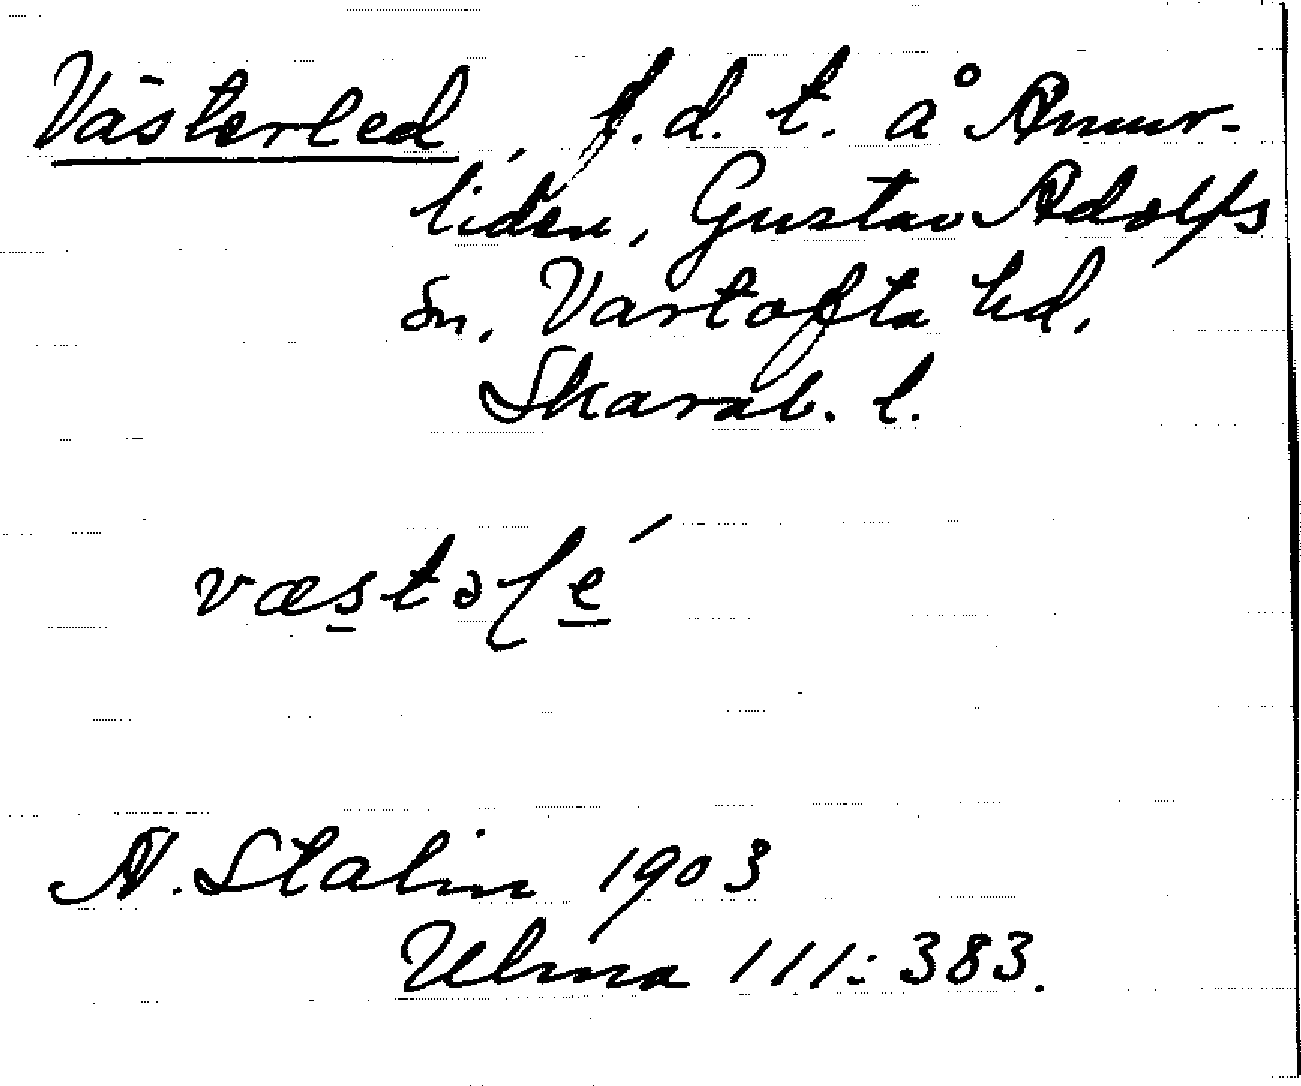 Västerled, f.d. t. å Amur-
liden, Gustav Adolfs
sn, Vartofta hd,
Skarab. l.
væstəlé
A. Stalin 1903
Ulma 111:383.